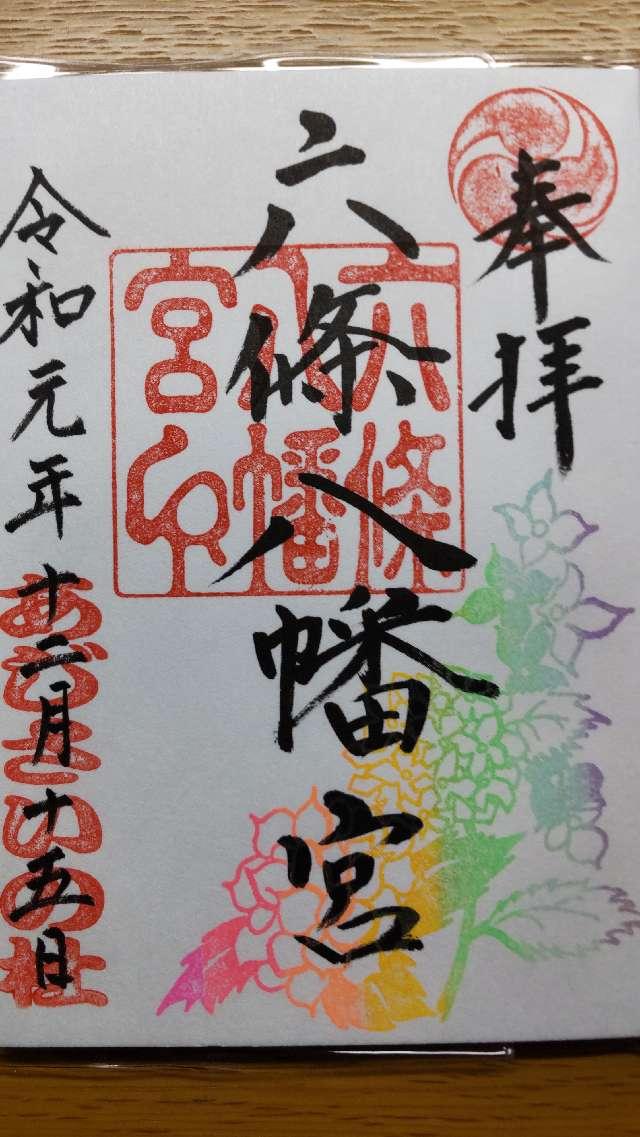 奉拝
六條八幡宮
六條
八幡
宮印
令和元年十二月十五日
あじさいの社